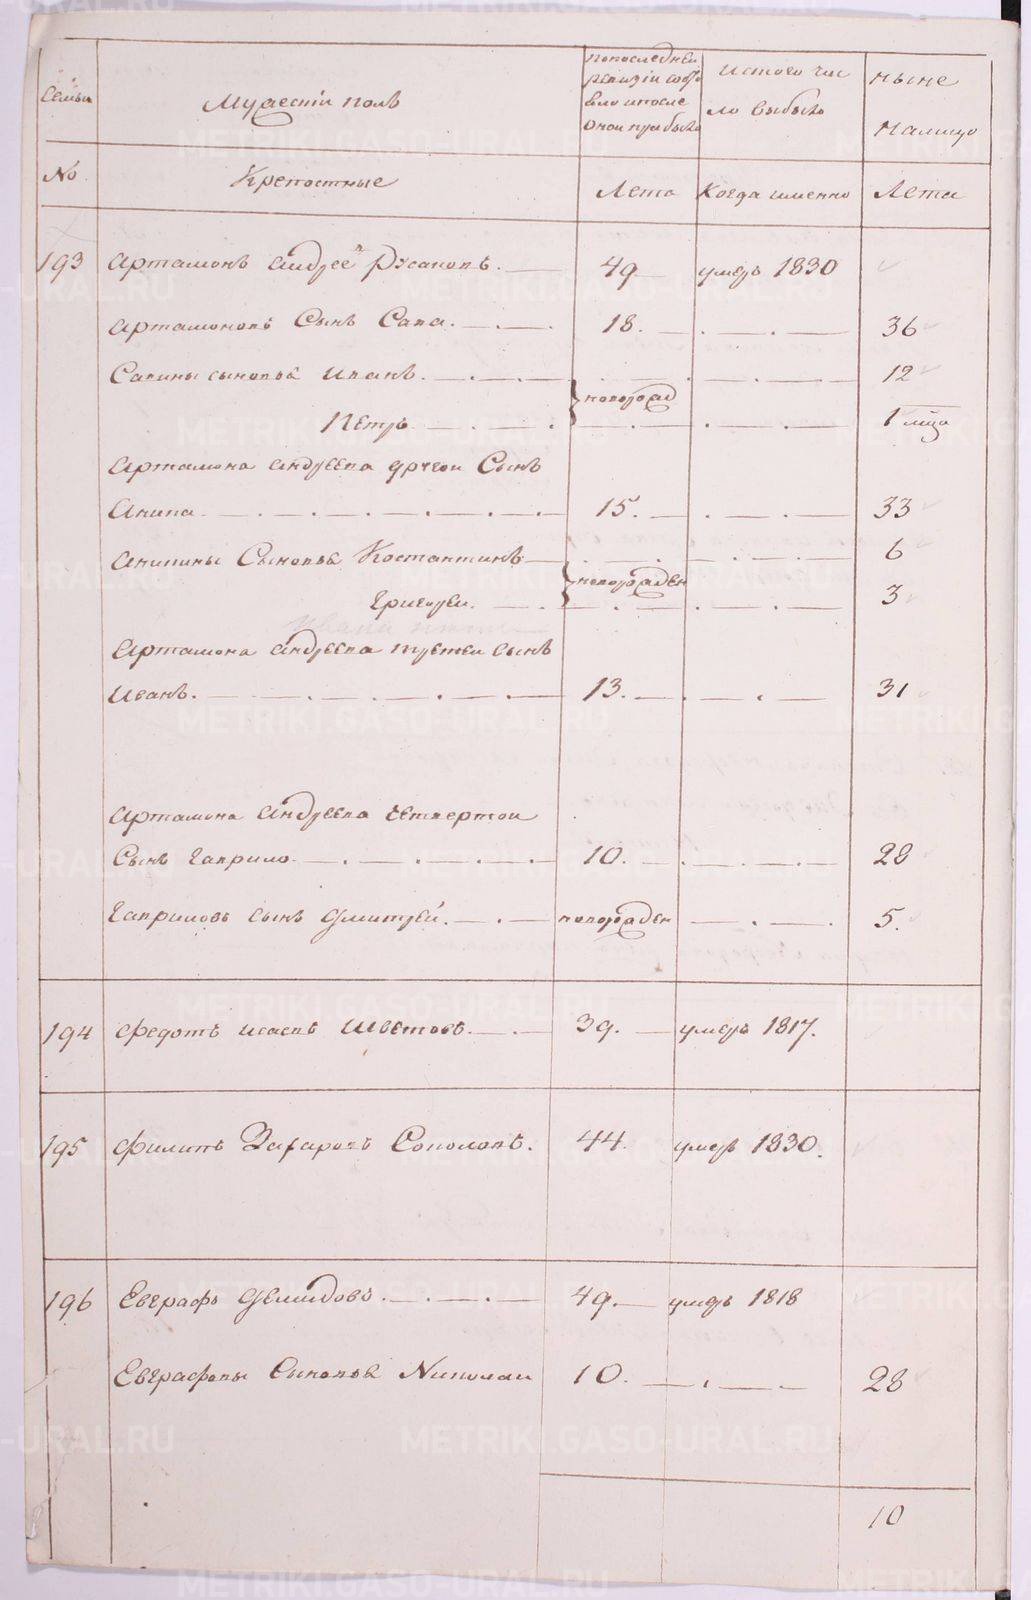 семьи
Мужескiй полъ
попоследней
ревизiи состо
яло ипосле
оной прибыло
Истого чис
ло выбыло
ныне
налицо
No
Крепостные
Лета
Когда имянно
Лета
193 Артамонъ Андреевъ Русановъ. 49 умеръ 1830
Артамоновъ Сынъ Сава. 18. 36
Савины сыновья Иванъ. 12
новорожд
Петръ 1 мца
Артамона Андреева другой Сынъ
Анипа 15. 33
Анипины Сыновья Костантинъ 6
новорожден
Григорей. 3
Артамона Андреева третей сынъ
Иванъ. 13. 31
Артамона Андреева четвертой
Сынъ Гаврило 10. 28
Гавриловъ сынъ Дмитрей. новорожден 5.
194 Федотъ Исаевъ Шветовъ. 39. умеръ 1817.
195 Филипъ Захаровъ Соколовъ. 44. умеръ 1830.
196 Евграфъ Демидовъ. 49. умеръ 1818
Евграфовы Сыновья Николай 10. 28
10
METRIKI.GASO-URAL.RU